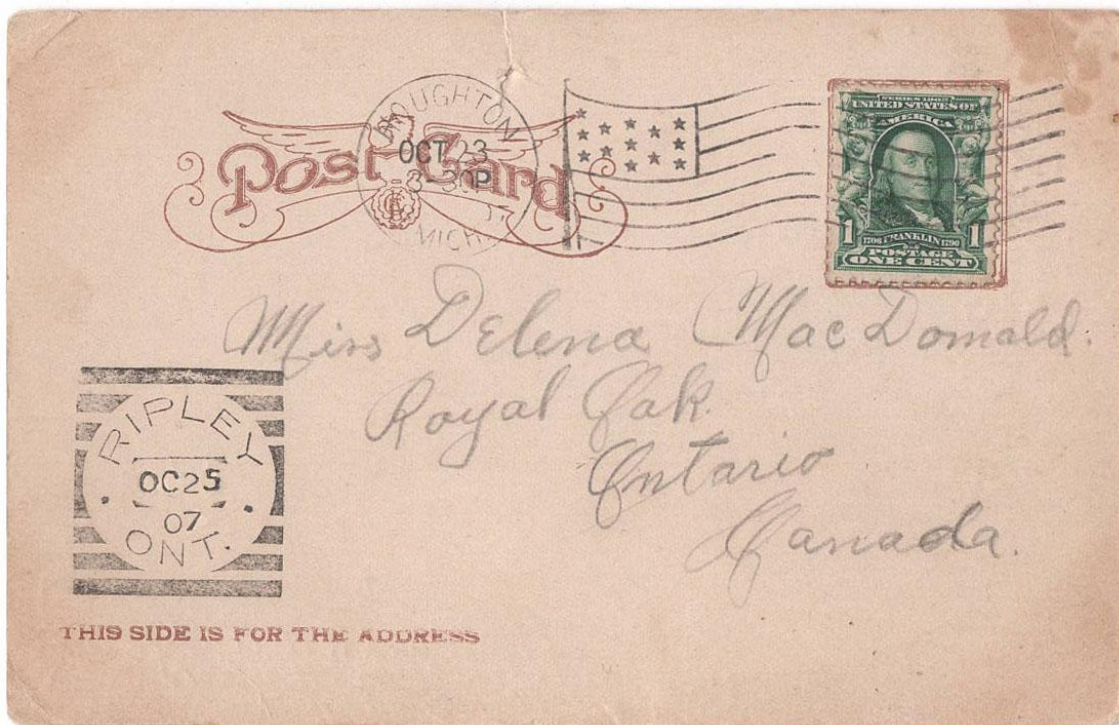 Post Card
HOUGHTON
OCT 23
MICH
SERIES 1902
UNITED STATES OF
AMERICA
1 1706 FRANKLIN 1790 1
POSTAGE
ONE CENT
Miss Delena MacDonald.
Royal Oak.
Ontario
Canada.
RIPLEY
OC 25
07
ONT.
THIS SIDE IS FOR THE ADDRESS